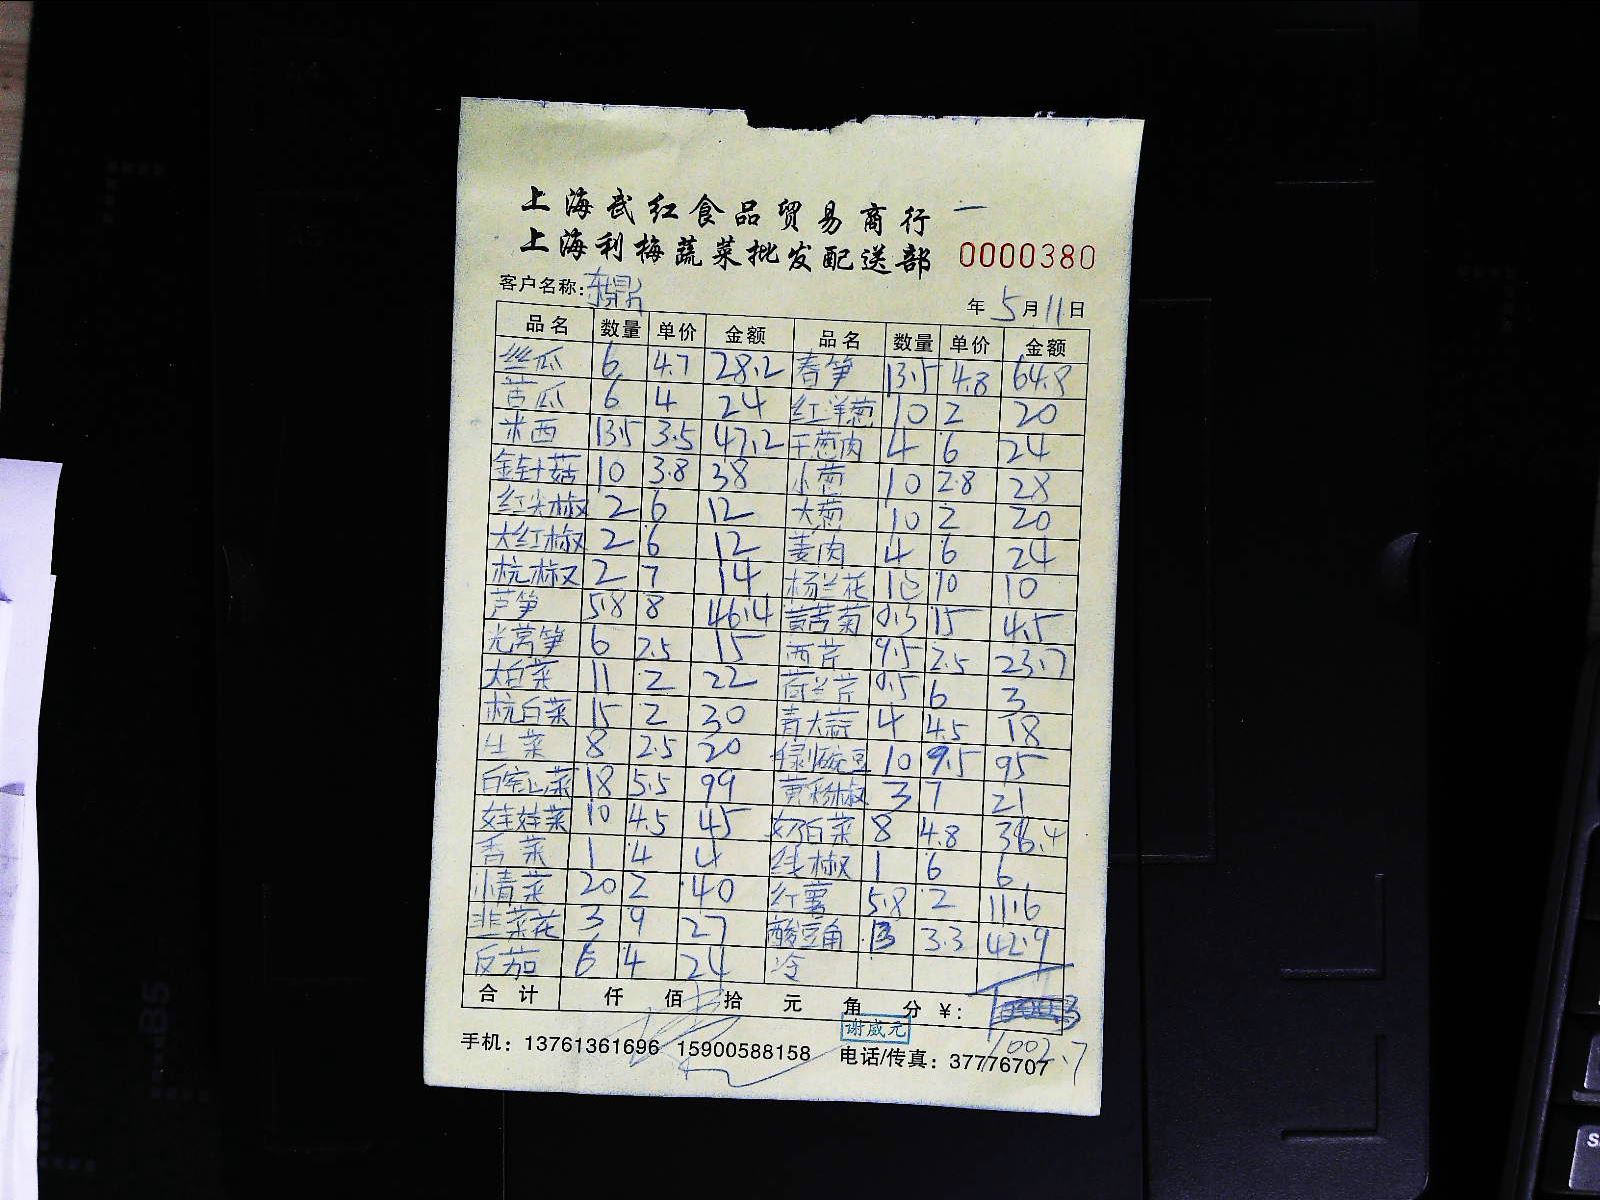 上海武红食品贸易商行
上海利梅蔬菜批发配送部 0000380
客户名称: 东鼎 年 5 月 11 日
品名 数量 单价 金额 品名 数量 单价 金额
丝瓜 6 4.7 28.2 春笋 13.5 4.8 64.8
苦瓜 6 4 24 红洋葱 10 2 20
米西 13.5 3.5 47.2 干葱肉 4 6 24
金针菇 10 3.8 38 小葱 10 2.8 28
红尖椒 2 6 12 大葱 10 2 20
大红椒 2 6 12 姜肉 4 6 24
杭椒 2 7 14 杨兰花 10 10
芦笋 5.8 8 46.4 黄苦菊 0.3 15 4.5
光莴笋 6 2.5 15 西芹 9.5 2.5 23.7
大白菜 11 2 22 荷兰芹 0.5 6 3
杭白菜 15 2 30 青大蒜 4 4.5 18
生菜 8 2.5 20 豌豆 10 9.5 95
白菜 18 5.5 99 黄彩椒 3 7 21
娃娃菜 10 4.5 45 奶白菜 8 4.8 38.4
香菜 1 4 4 线椒 1 6 6
小青菜 20 2 40 红薯 5.8 2 11.6
韭菜花 3 9 27 酸豆角 13 3.3 42.9
反茄 6 4 24 冷
合计 仟 佰 拾 元 角 分 ¥:
谢威元
1002.7
手机: 13761361696 15900588158 电话/传真: 37776707